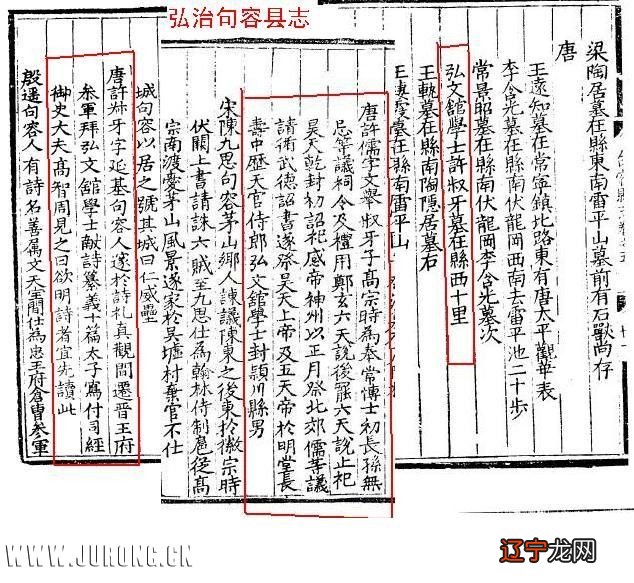 弘治句容县志
梁陶居墓在縣東南雷平山墓前有石獸尚存
唐
王遠知墓在常寧鎮北路東有唐太平觀華表
李含光墓在縣南伏龍岡西南去雷平池二十步
常景昭墓在縣南伏龍岡李含光墓次
弘文舘學士許叔牙墓在縣西十里
王軌墓在縣南陶隱居墓右
唐許儒字文舉叔牙子高宗時為奉常博士初長孫無
忌等議祠令及禮用鄭玄六天說後罷六天說止祀
昊天乾封初詔祀感帝神州以正月祭北郊儒等議
請術武德詔書遂祭昊天上帝及五天帝於明堂長
壽中歷天官侍郎弘文舘學士封潁川縣男
宋陳九思句容茅山鄉人諫議陳東之後東於徽宗時
伏闕上書請誅六賊至九思仕為翰林侍制扈從高
宗南渡愛茅山風景遂家於吴墟村棄官不仕
城句容以居之號其城曰仁威壘
唐許叔牙字延基句容人邃於詩札貞觀間遷晋王府
叅軍拜弘文舘學士獻詩纂義十篇太子寫付司經
御史大夫髙智周見之曰欲明詩者宜先讀此
殷遥句容人有詩名善属文天宝間仕為忠王府倉曹叅軍
WWW.JURONG.CN
辽宁龙网